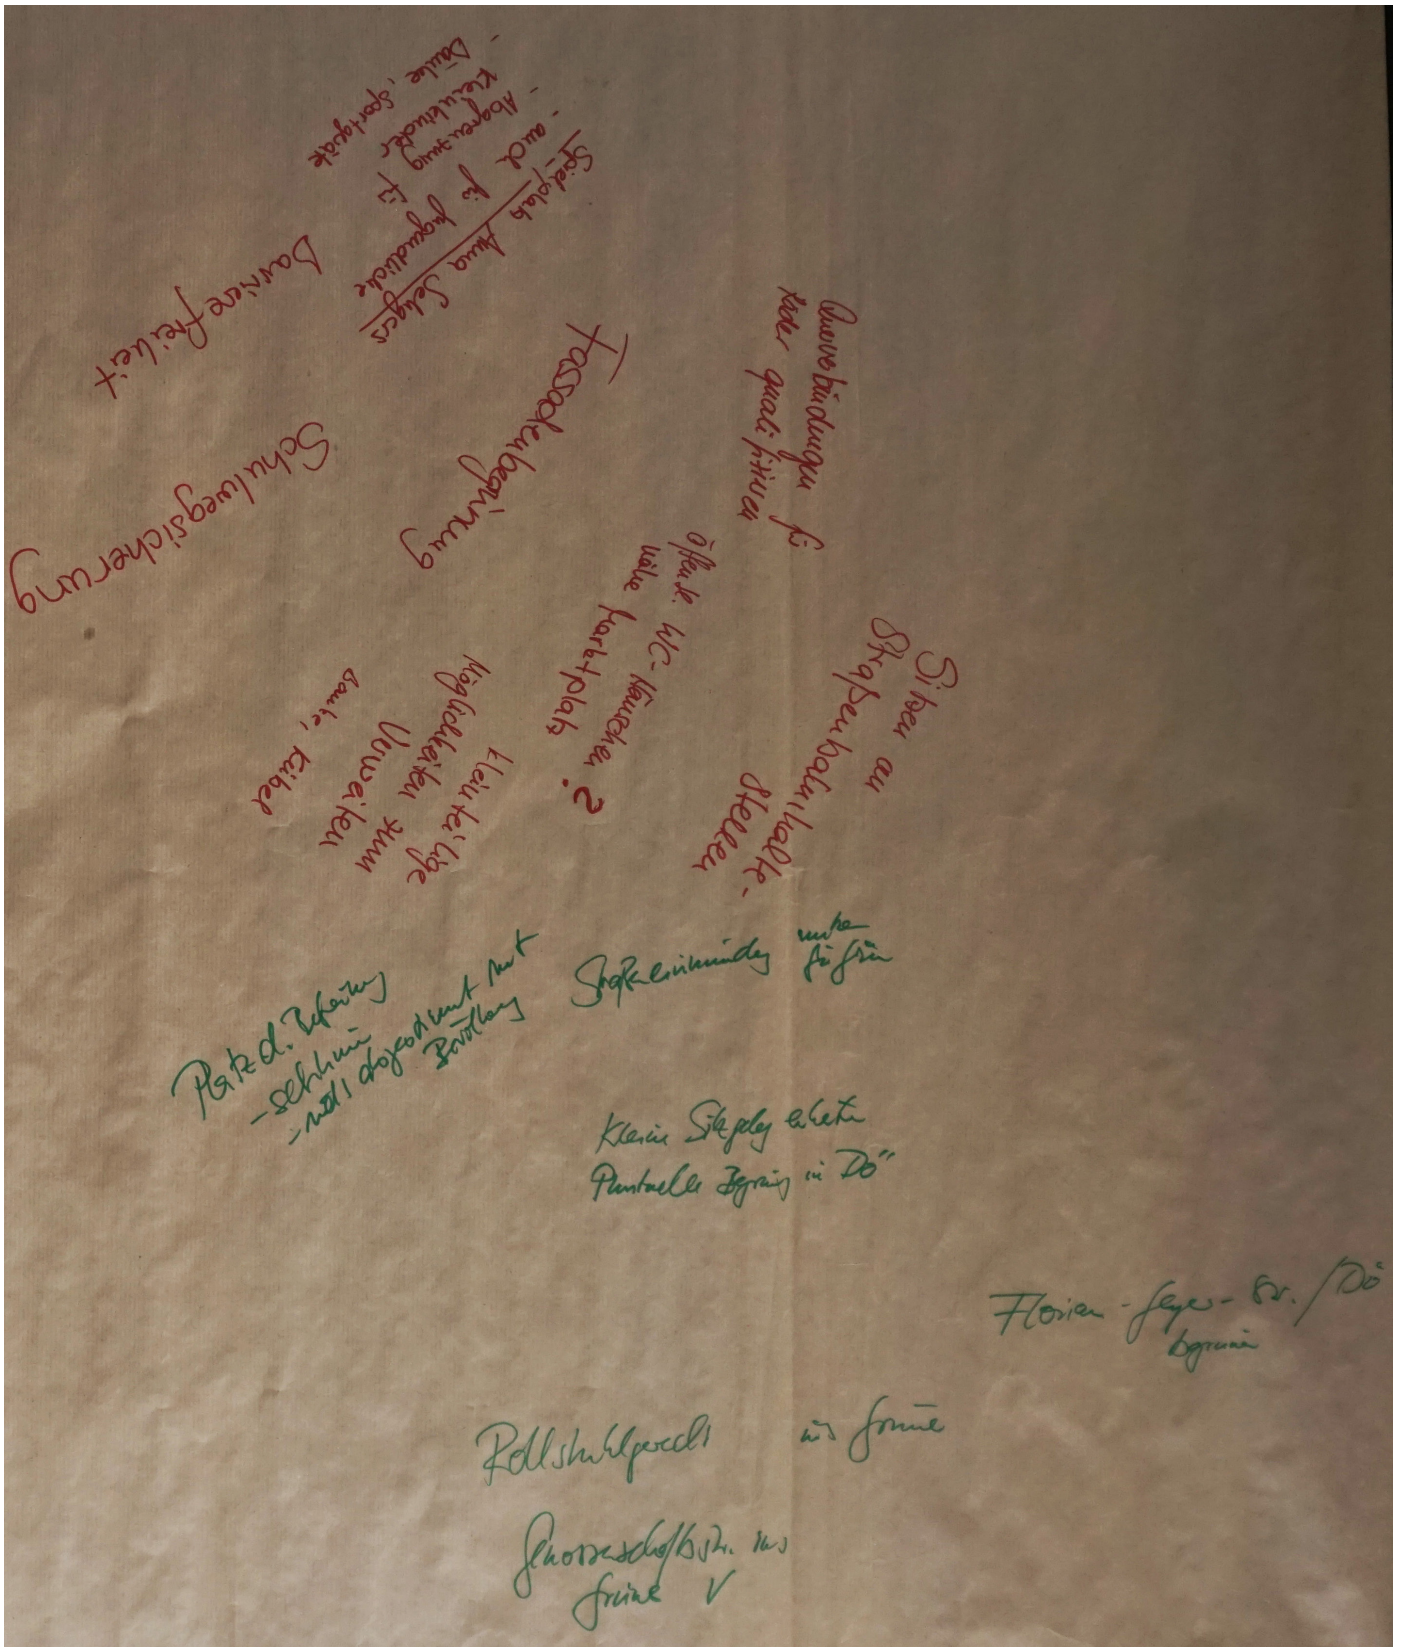 Spielplatz Anna Seghers
- auch für Jugendliche
- Abgrenzung für
Kleinkinder
- Bänke, Sportgeräte
Barrierefreiheit
Schulwegsicherung
Fassadenbegrünung
Querverbindungen für
Räder qualifizieren
Öffentl. WC-Häuschen
nähe Marktplatz ?
Sitzen an
Straßenbahnhalte-
stellen
kleinteilige
Möglichkeiten zum
Verweilen
Bänke, Kübel
Platz d. Befreiung
- schlimm
- nicht abgestimmt mit
Bevölkerung
Straßeneinmündung nutzen
für Grün
Kleine Sitzgeleg
Punktuelle in Dö
Florian-Geyer-Str. / Dö
begrünen
Rollstuhlgerecht ins Grüne
Genossenschaftsstr. ins
Grüne V